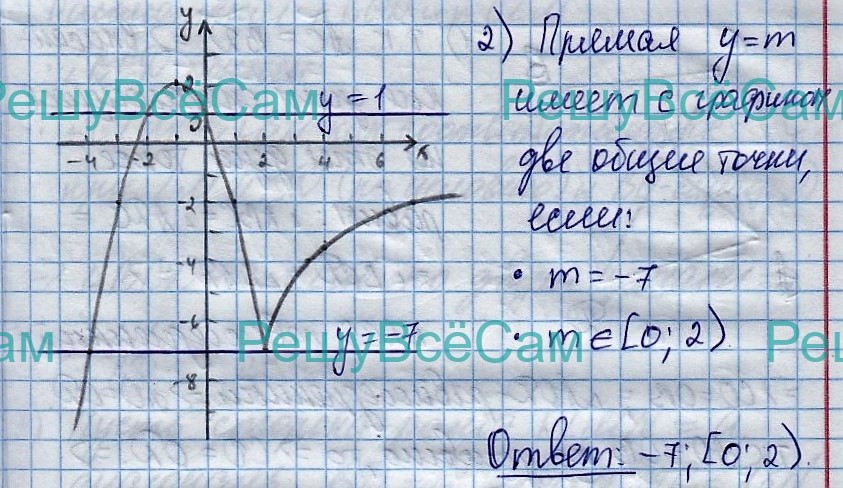 y
2) Прямая y=m
РешуВсёСам
y=1
имеет с графиком
2
0
-4 -2 2 4 6 x
две общие точки,
-2
если:
-4
• m=-7
-6
y=-7
• m∈[0; 2)
ам РешуВсёСам Реш
-8
Ответ: -7; [0; 2).